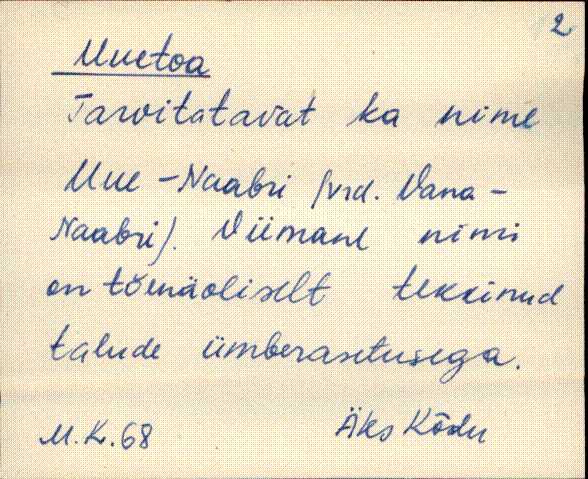 2
Uuetoa
Tarvitatavat ka nime
Uue-Naabri (vrd. Vana-
Naabri). Viimane nimi
on tõenäoliselt tekkinud
talude ümberasetusega.
M.K.68 Äks Kõdu